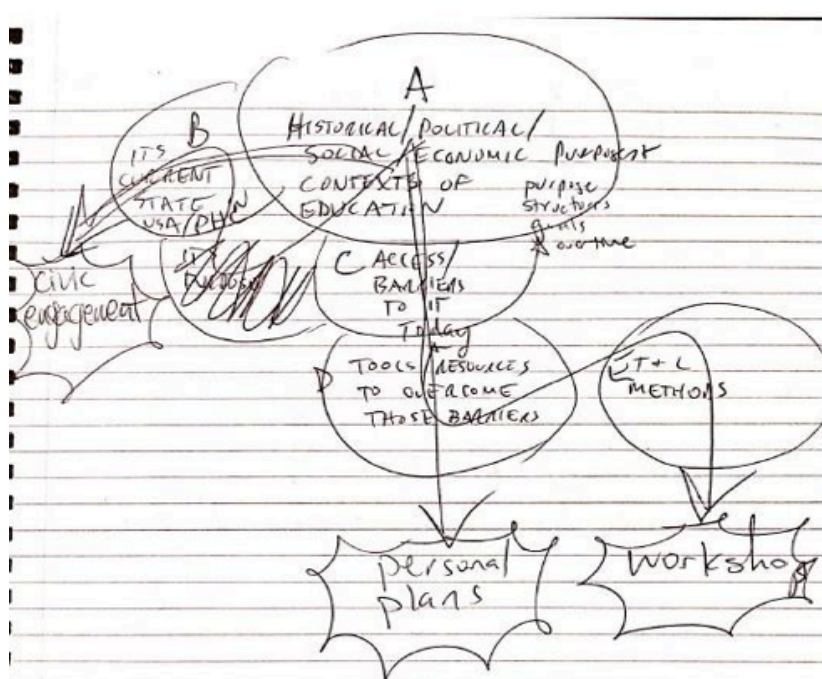 A
HISTORICAL/POLITICAL/
SOCIAL/ECONOMIC
CONTEXTS OF
EDUCATION
purpose
structures
goals
overtime
B
ITS
CURRENT
STATE
USA/PHL
ITS
PURPOSE
C ACCESS/
BARRIERS
TO IT
Today
D TOOLS/RESOURCES
TO OVERCOME
THOSE BARRIERS
E T + L
METHODS
civic
engagement
personal
plans
workshops